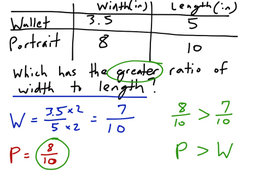 Width(in) Length(in)
Wallet 3.5 5
Portrait 8 10
Which has the greater ratio of
width to length?
W = 3.5 x2 / 5 x2 = 7/10
8/10 > 7/10
P = 8/10
P > W